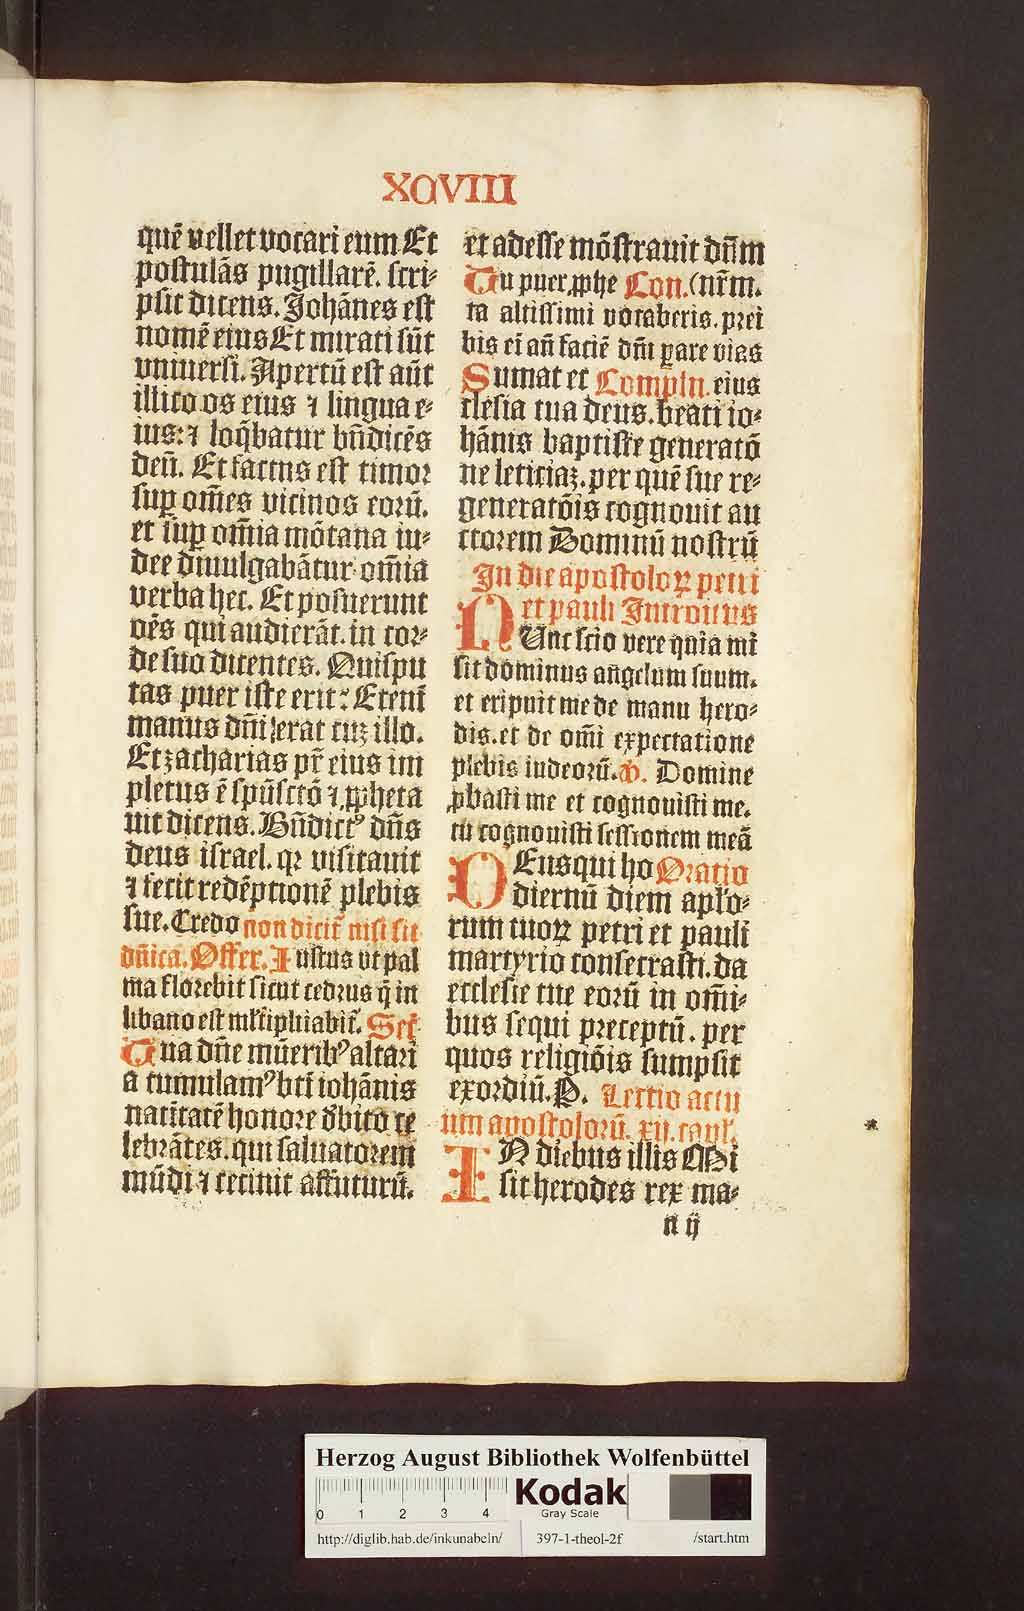 XCVIII
quē vellet vocari eum Et
postulās pugillarē. scri⸗
psit dicens. Johānes est
nomē eius Et mirati sūt
vniuersi. Apertū est aūt
illico os eius ⁊ lingua e⸗
ius: ⁊ loq̄batur bn̄dicēs
deū. Et factus est timor
sup om̄es vicinos eorū.
et sup om̄ia mōtana iu⸗
dee diuulgabātur om̄ia
verba hec. Et posuerunt
oēs qui audierāt. in cor⸗
de suo dicentes. Quis pu
tas puer iste erit: Etenī
manus dn̄i erat cuꝫ illo.
Et zacharias pr̄ eius im
pletus ē spū sctō ⁊ ꝓpheta
uit dicens. Bn̄dictꝰ dn̄s
deus israel. qꝛ visitauit
⁊ fecit redēptionē plebis
sue. Credo non dicit̄ nisi sit
dn̄ica. Offer. Iustus vt pal
ma florebit sicut cedrus q̄ in
libano est ml̄tiplicabit̄. Sec̄
Tua dn̄e mūeribꝰ altari
a cumulamꝰ bt̄i iohānis
natiitatē honore d̄bito ce
lebrātes. qui saluatorem
mūdi ⁊ cecinit affuturū.
et adesse mōstrauit dn̄m
Tu puer ꝓphe Con. (nr̄m.
ta altissimi vocaberis. prei
bis eī an̄ faciē dn̄i ꝑare vias
Sumat ec Compln. eius
clesia tua deus. beati io⸗
hānis baptiste generatō
ne leticiaꝫ. per quē sue re⸗
generatōis cognouit au
ctorem Dominū nostrū
In die apostoloꝝ petri
et pauli Introitus
NUnc scio vere quia mi
sit dominus an̄gelum suum.
et eripuit me de manu hero⸗
dis. et de om̄i expectatione
plebis iudeorū. ps. Domine
ꝓbasti me et cognouisti me.
tu cognouisti sessionem meā
DEus qui ho Oratio
diernū diem apl̄o⸗
rum tuoꝝ petri et pauli
martyrio consecrasti. da
ecclesie tue eorū in om̄i⸗
bus sequi preceptū. per
quos religiōis sumpsit
exordiū. P. Lectio actu
um apostolorū. xij. capl̄.
IN diebus illis Mi
sit herodes rex ma⸗
n ij
Herzog August Bibliothek Wolfenbüttel
0 1 2 3 4
Kodak
Gray Scale
http://diglib.hab.de/inkunabeln/ 397-1-theol-2f /start.htm